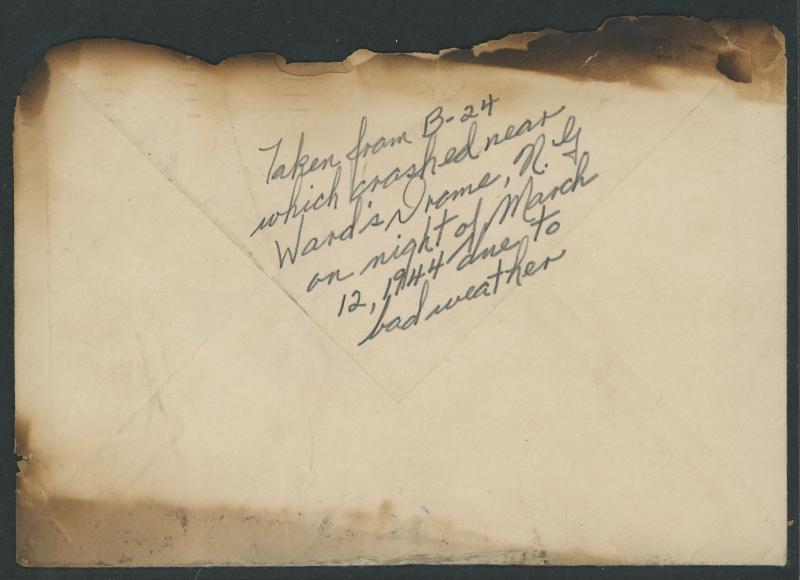 Taken from B-24
which crashed near
Ward's Drome, N.G
on night of March
12, 1944 due to
bad weather